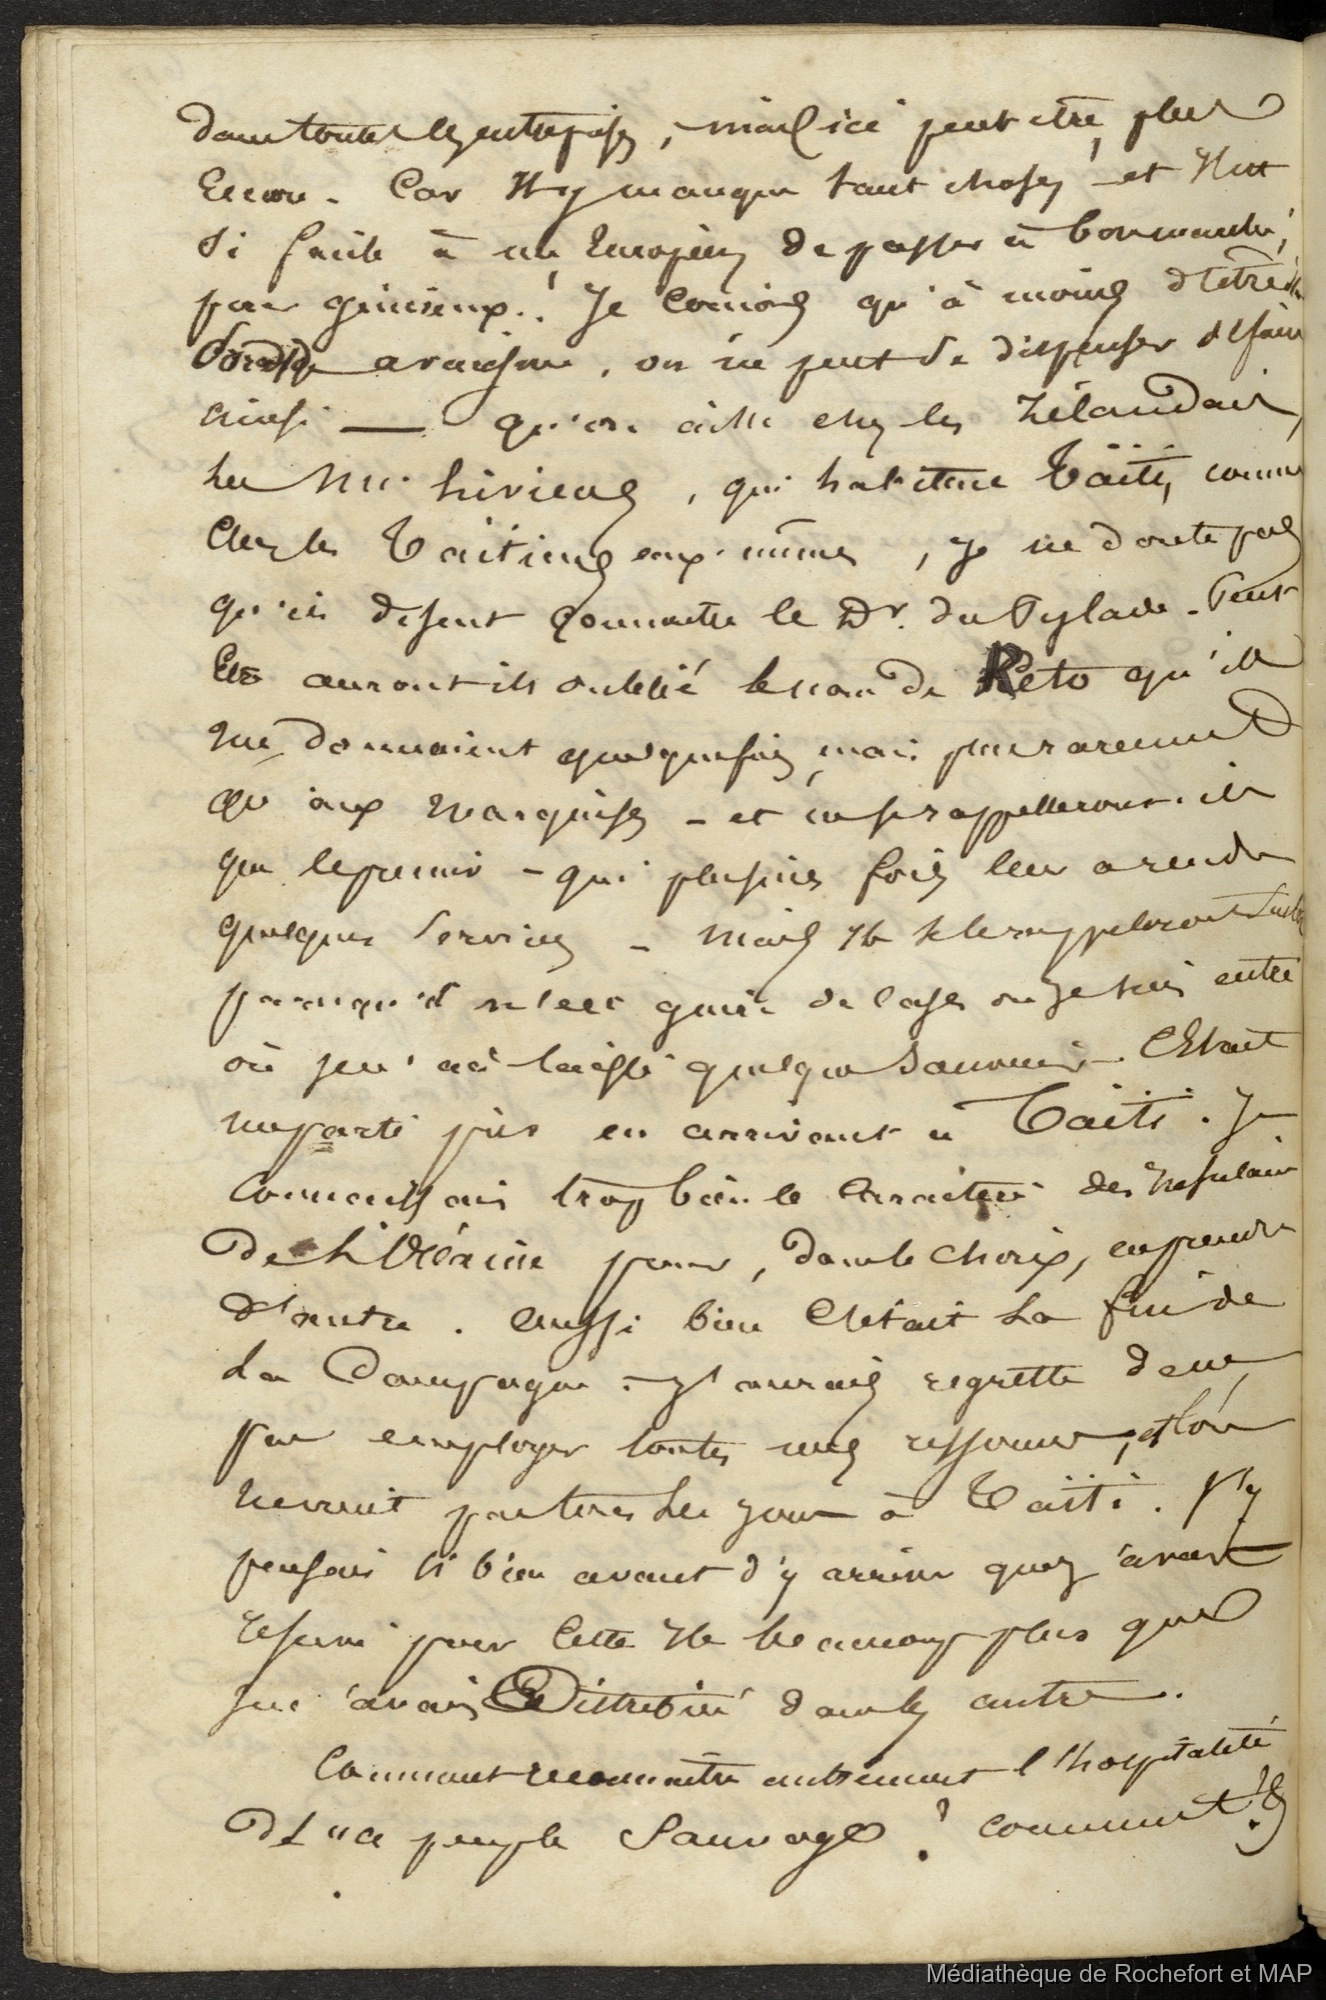 dans toutes les entreprises, mais ici peut être plus
Encore. Car Il y manque tant choses et Il est
si facile à un Européen de passer à bon marché,
pour généreux..! Je Conviens qu'à moins d'être
Sordide avarissime, on ne peut se dispenser de faire
ainsi — qu'on aille chez les Zélandais,
les qui habitent Taïti, comme
Chez les Taïtiens eux-mêmes, je ne doute pas
qu'ils disent Connaitre le Dr. du Pylade - Peut
Etre auront ils oublié le nom de Reto qu'ils
me donnaient quelquefois, mais plus rarement
qu'aux Marquises - et ne se rappelleront-ils
que le premier - qui plusieurs fois leur a rendu
quelques Services - Mais Ils se le rappeleront
parcequ'il n'est guère de Cases ou Je suis entré
où je n'ai laissé quelque Souvenir - C'était
un parti pris en arrivant à Taïti. Je
Connaissais trop bien le Caractère des Insulaires
De L'Océanie pour, dans le Choix, en prendre
d'autre. Aussi bien C'était la fin de
La Campagne - J'aurais regretté de ne
pas employer toutes mes ressources, et l'on
ne vient pas tous les jours à Taïti. J'y
pensais si bien avant d'y arriver que j'avais
réservé pour Cette Ile beaucoup plus que
je n'avais Distribué dans les autres.
Comment reconnaitre autrement l'hospitalité
De ce peuple Sauvage? comment?
Médiathèque de Rochefort et MAP